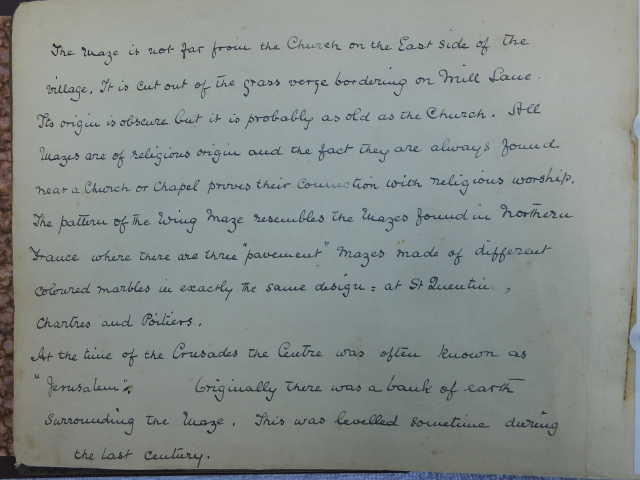 The Maze is not far from the Church on the East side of the
village. It is cut out of the grass verge bordering on Mill Lane.
Its origin is obscure but it is probably as old as the Church. All
Mazes are of religious origin and the fact they are always found
near a Church or Chapel proves their connection with religious worship.
The pattern of the Wing Maze resembles the Mazes found in Northern
France where there are three "pavement" Mazes made of different
coloured marbles in exactly the same design : at St Quentin,
Chartres and Poitiers.
At the time of the Crusades the Centre was often known as
"Jerusalem". Originally there was a bank of earth
surrounding the Maze. This was levelled sometime during
the last century.